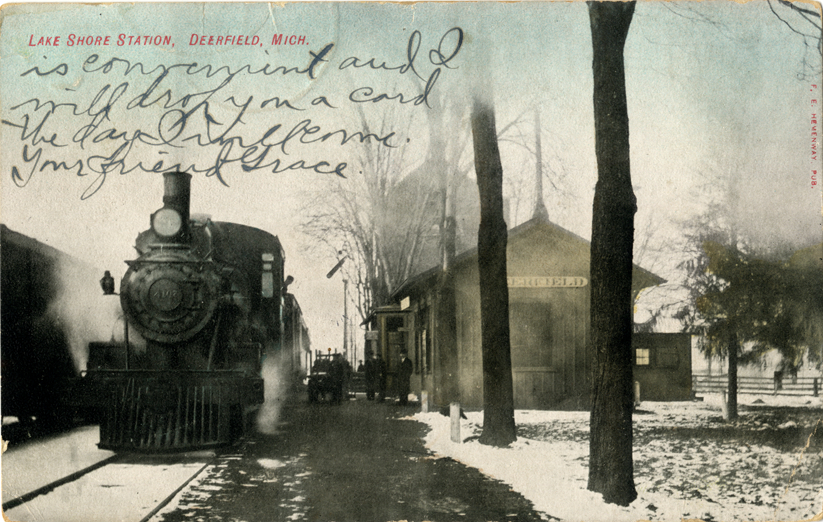 LAKE SHORE STATION, DEERFIELD, MICH.
is convenient and I
will drop you a card
the day I will come.
Your friend Grace.
F. E. HEMENWAY PUB.
DEERFIELD